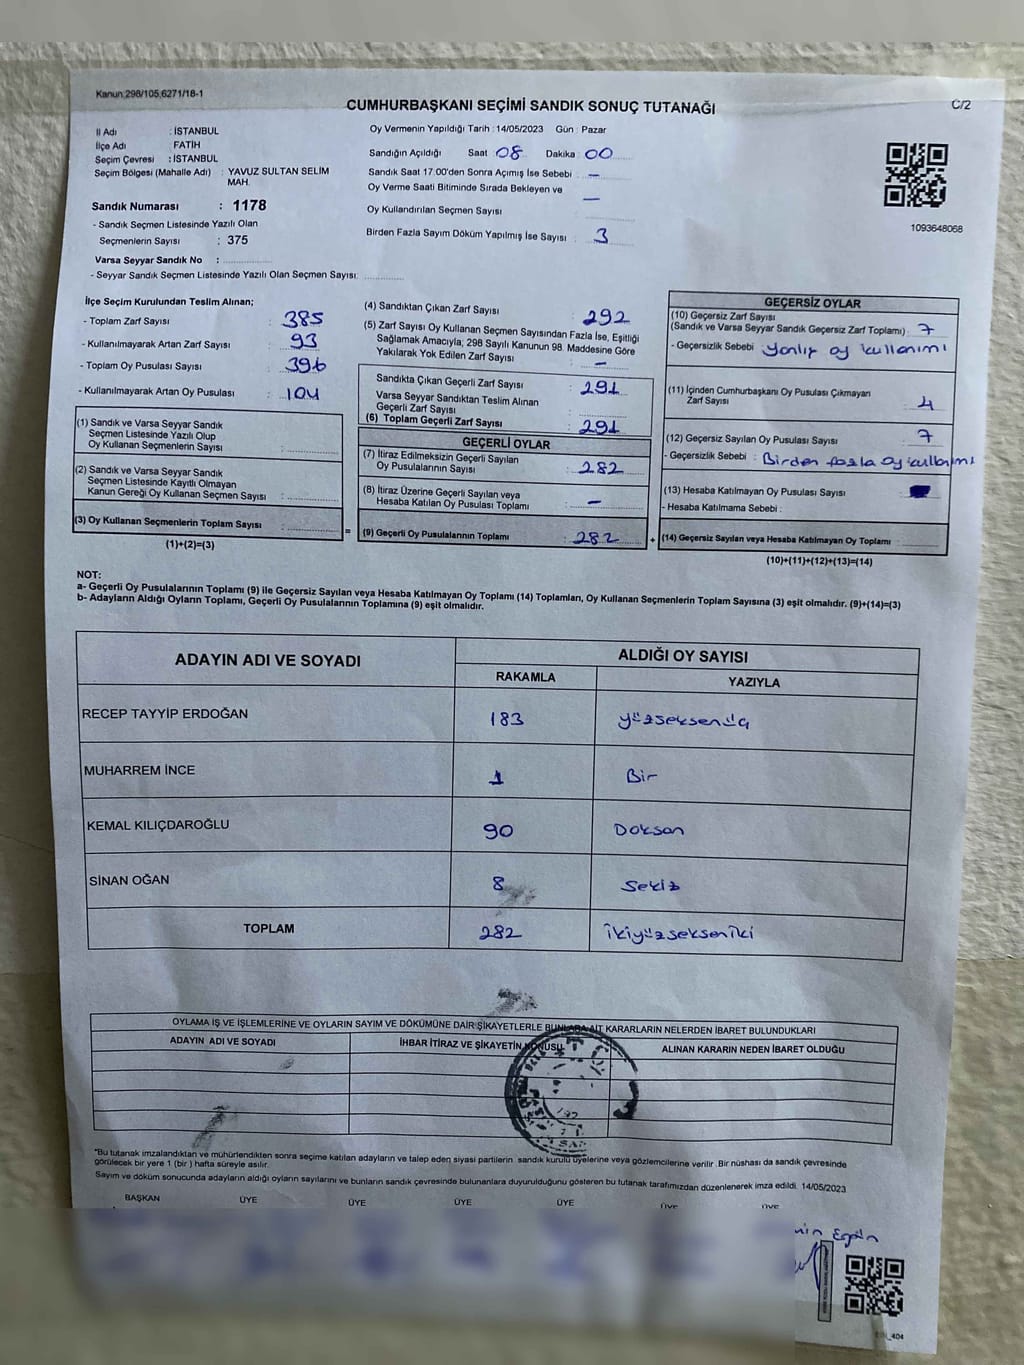 Kanun:298/105,6271/18-1
CUMHURBAŞKANI SEÇİMİ SANDIK SONUÇ TUTANAĞI
C/2
İl Adı : İSTANBUL
İlçe Adı FATİH
Seçim Çevresi : İSTANBUL
Seçim Bölgesi (Mahalle Adı) : YAVUZ SULTAN SELİM
MAH.
Sandık Numarası : 1178
- Sandık Seçmen Listesinde Yazılı Olan
Seçmenlerin Sayısı : 375
Varsa Seyyar Sandık No :
- Seyyar Sandık Seçmen Listesinde Yazılı Olan Seçmen Sayısı:
Oy Vermenin Yapıldığı Tarih : 14/05/2023 Gün : Pazar
Sandığın Açıldığı Saat 08 Dakika 00
Sandık Saat 17:00'den Sonra Açımış İse Sebebi : —
Oy Verme Saati Bitiminde Sırada Bekleyen ve
Oy Kullandırılan Seçmen Sayısı —
Birden Fazla Sayım Döküm Yapılmış İse Sayısı : 3
1093648068
İlçe Seçim Kurulundan Teslim Alınan;
- Toplam Zarf Sayısı : 385
- Kullanılmayarak Artan Zarf Sayısı : 93
- Toplam Oy Pusulası Sayısı : 396
- Kullanılmayarak Artan Oy Pusulası : 104
(1) Sandık ve Varsa Seyyar Sandık
Seçmen Listesinde Yazılı Olup
Oy Kullanan Seçmenlerin Sayısı :
(2) Sandık ve Varsa Seyyar Sandık
Seçmen Listesinde Kayıtlı Olmayan
Kanun Gereği Oy Kullanan Seçmen Sayısı :
(3) Oy Kullanan Seçmenlerin Toplam Sayısı :
(1)+(2)=(3)
=
(4) Sandıktan Çıkan Zarf Sayısı : 292
(5) Zarf Sayısı Oy Kullanan Seçmen Sayısından Fazla İse, Eşitliği
Sağlamak Amacıyla; 298 Sayılı Kanunun 98. Maddesine Göre
Yakılarak Yok Edilen Zarf Sayısı : —
Sandıkta Çıkan Geçerli Zarf Sayısı : 291
Varsa Seyyar Sandıktan Teslim Alınan
Geçerli Zarf Sayısı :
(6) Toplam Geçerli Zarf Sayısı : 291
GEÇERLİ OYLAR
(7) İtiraz Edilmeksizin Geçerli Sayılan
Oy Pusulalarının Sayısı : 282
(8) İtiraz Üzerine Geçerli Sayılan veya
Hesaba Katılan Oy Pusulası Toplamı : —
(9) Geçerli Oy Pusulalarının Toplamı : 282
+
GEÇERSİZ OYLAR
(10) Geçersiz Zarf Sayısı
(Sandık ve Varsa Seyyar Sandık Geçersiz Zarf Toplamı) : 7
- Geçersizlik Sebebi : yanlış oy kullanımı
(11) İçinden Cumhurbaşkanı Oy Pusulası Çıkmayan
Zarf Sayısı : 4
(12) Geçersiz Sayılan Oy Pusulası Sayısı : 7
- Geçersizlik Sebebi : Birden fazla oy kullanımı
(13) Hesaba Katılmayan Oy Pusulası Sayısı :
- Hesaba Katılmama Sebebi :
(14) Geçersiz Sayılan veya Hesaba Katılmayan Oy Toplamı :
(10)+(11)+(12)+(13)=(14)
NOT:
a- Geçerli Oy Pusulalarının Toplamı (9) ile Geçersiz Sayılan veya Hesaba Katılmayan Oy Toplamı (14) Toplamları, Oy Kullanan Seçmenlerin Toplam Sayısına (3) eşit olmalıdır. (9)+(14)=(3)
b- Adayların Aldığı Oyların Toplamı, Geçerli Oy Pusulalarının Toplamına (9) eşit olmalıdır.
ADAYIN ADI VE SOYADI
ALDIĞI OY SAYISI
RAKAMLA YAZIYLA
RECEP TAYYİP ERDOĞAN 183 yüzseksenüç
MUHARREM İNCE 1 Bir
KEMAL KILIÇDAROĞLU 90 Doksan
SİNAN OĞAN 8 Sekiz
TOPLAM 282 ikiyüzsekseniki
OYLAMA İŞ VE İŞLEMLERİNE VE OYLARIN SAYIM VE DÖKÜMÜNE DAİR ŞİKAYETLERLE BUNLARA AİT KARARLARIN NELERDEN İBARET BULUNDUKLARI
ADAYIN ADI VE SOYADI İHBAR İTİRAZ VE ŞİKAYETİN KONUSU ALINAN KARARIN NEDEN İBARET OLDUĞU
"Bu tutanak imzalandıktan ve mühürlendikten sonra seçime katılan adayların ve talep eden siyasi partilerin sandık kurulu üyelerine veya gözlemcilerine verilir .Bir nüshası da sandık çevresinde
görülecek bir yere 1 (bir ) hafta süreyle asılır.
Sayım ve döküm sonucunda adayların aldığı oyların sayılarını ve bunların sandık çevresinde bulunanlara duyurulduğunu gösteren bu tutanak tarafımızdan düzenlenerek imza edildi. 14/05/2023
BAŞKAN ÜYE ÜYE ÜYE ÜYE ÜYE ÜYE